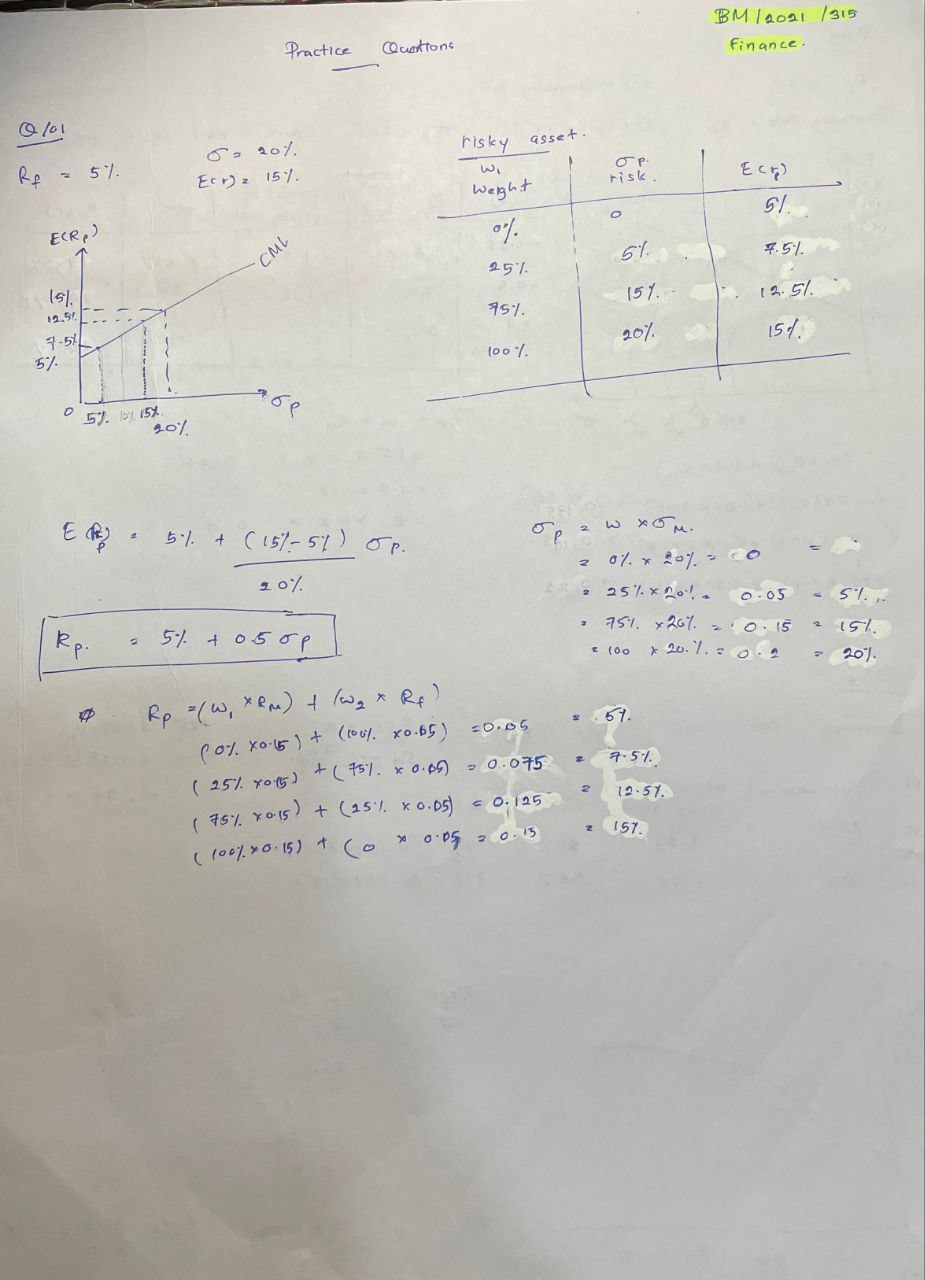 BM/2021/315
Finance.
Practice Questions
Q/01
Rf = 5%.
σ = 20%.
E(r) = 15%.
risky asset.
W1 Weight | σp risk. | E(rp)
0%. | 0 | 5%.
25%. | 5%. | 7.5%.
75%. | 15%. | 12.5%.
100%. | 20%. | 15%.
E(Rp)
CML
15%.
12.5%.
7.5%.
5%.
0 5%. 10%. 15%. 20%.
σp
E(Rp) = 5%. + (15%-5%) σp.
20%.
Rp. = 5% + 0.5 σp
σp = W × σM.
= 0%. × 20%. = 0 =
= 25%. × 20%. = 0.05 = 5%.
= 75%. × 20%. = 0.15 = 15%.
= 100 × 20.%. = 0.2 = 20%.
Rp = (W1 × RM) + (W2 × Rf)
(0% × 0.15) + (100%. × 0.05) = 0.05 = 5%.
(25%. × 0.15) + (75%. × 0.05) = 0.075 = 7.5%.
(75%. × 0.15) + (25%. × 0.05) = 0.125 = 12.5%.
(100% × 0.15) + (0 × 0.05 = 0.15 = 15%.